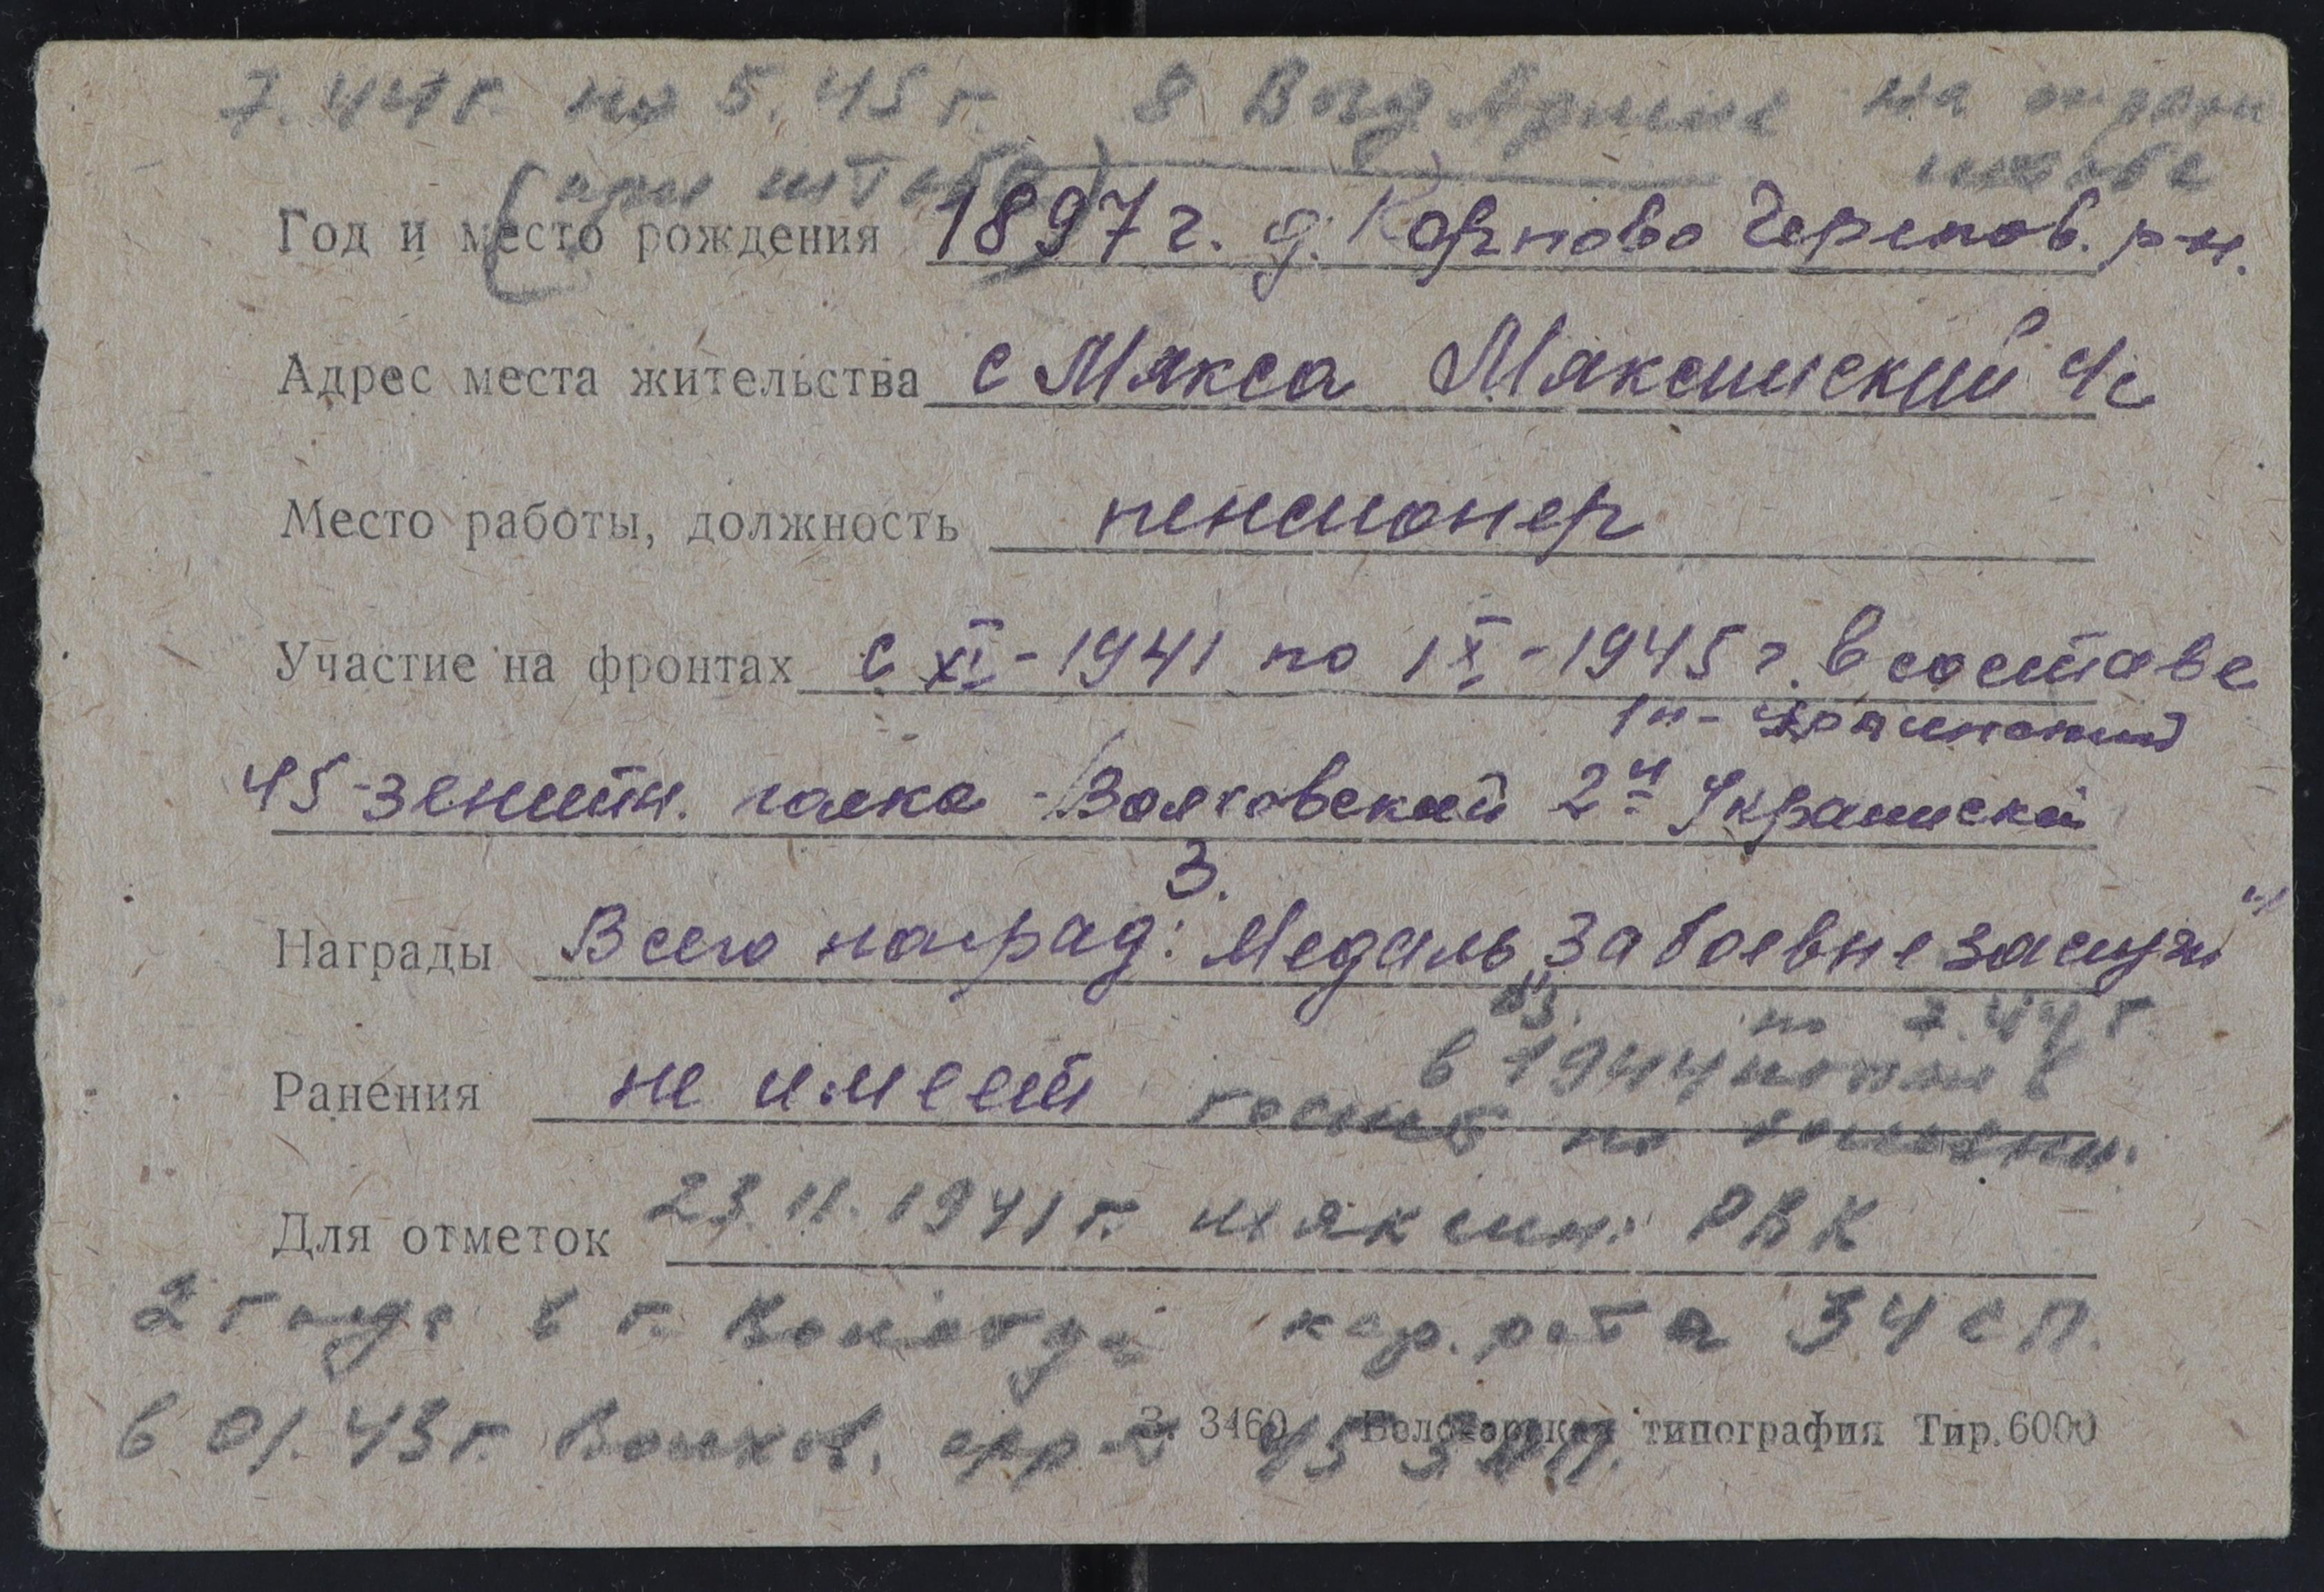 7.44 г. по 5.45 г. 8 Возд. Армия на охране
(при штабе) штаба
Год и место рождения 1897 г. д. Карпово Черепов. р-н.
Адрес места жительства с Мякса Мяксинский с/с
Место работы, должность пенсионер
Участие на фронтах с XI-1941 по IX-1945 г. в составе
1й - Украинский
45-зенитн. полка - Волховский 2й Украинский
3.
Награды Всего наград: Медаль „За боевые заслуги"
по 7.44 г.
в 1944 попал в
Ранения не имеет госпит по болезни.
Для отметок 23.11.1941 г. Мяксин. РВК
2 года в г. Вологде кар. рота 34 СП.
З. 3160 Белозерская типография Тир. 6000
в 01.43 г. Волхов. фр-т 45 ЗАП.